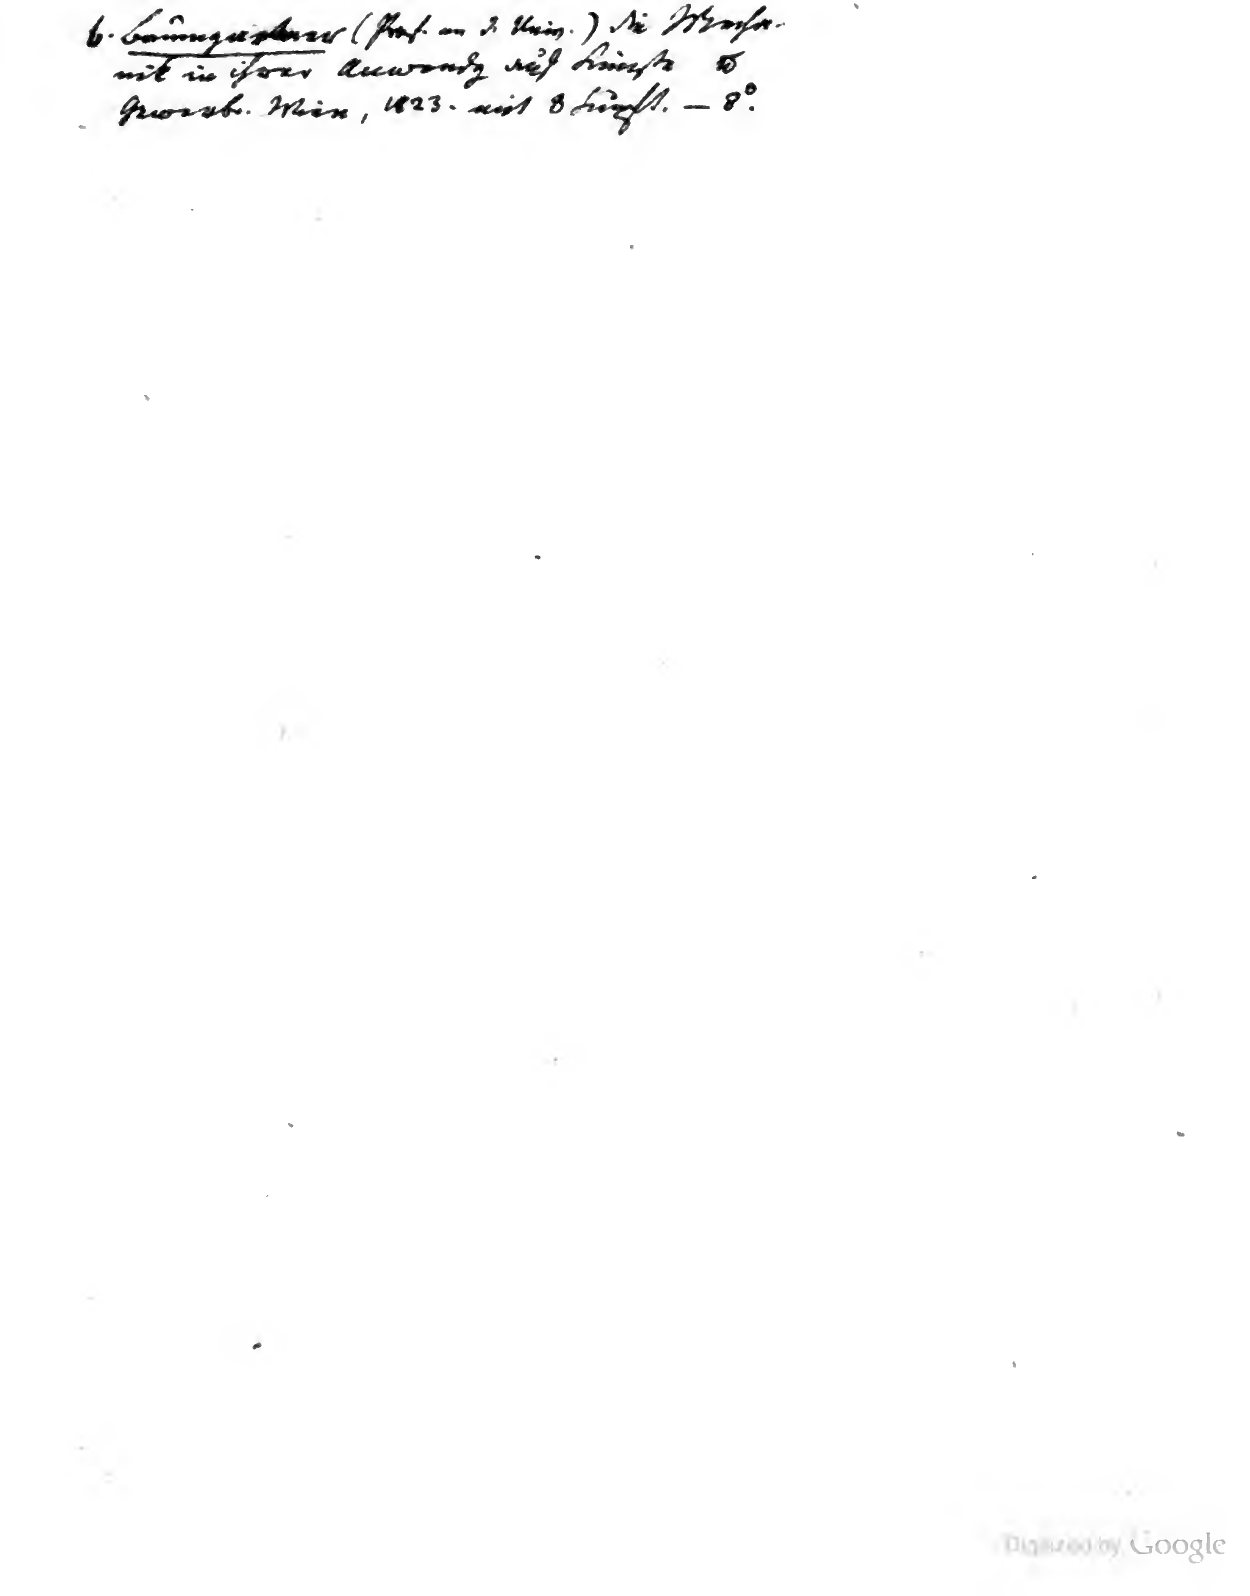 6. Baumgartner (Prof. an d. Univ.) die Mecha-
nik in ihrer Anwendg auf Künste &
Gewerbe. Wien, 1823. mit 8 Kupft. — 8°.
Digitized by Google